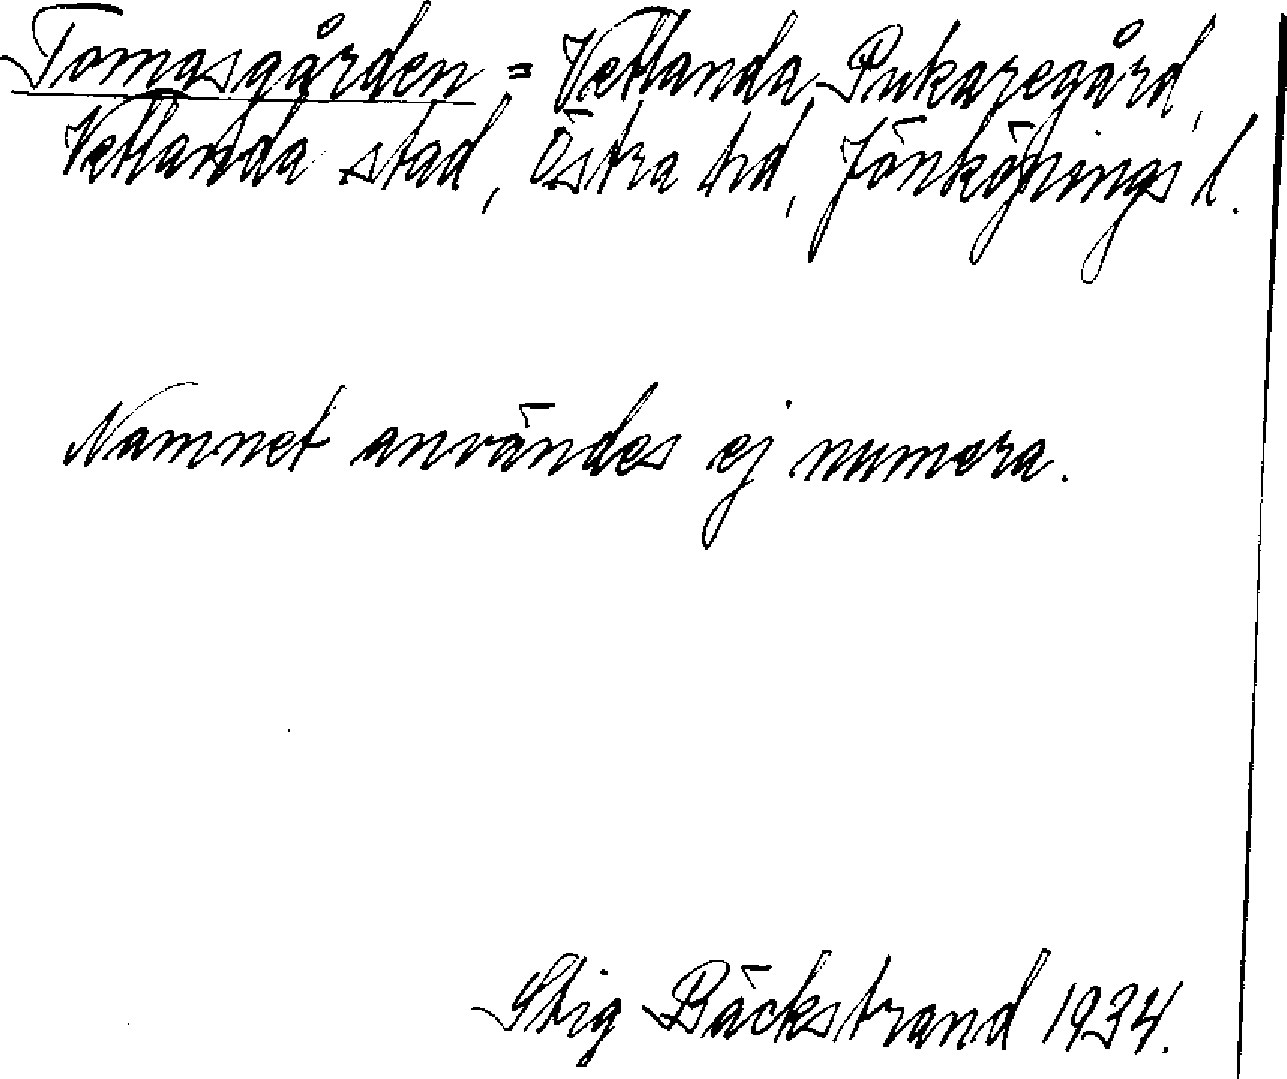 Tomasgården = Vetlanda Pukaregård,
Vetlanda stad, Östra hd, Jönköpings l.
Namnet användes ej numera.
Stig Bäckstrand 1934.